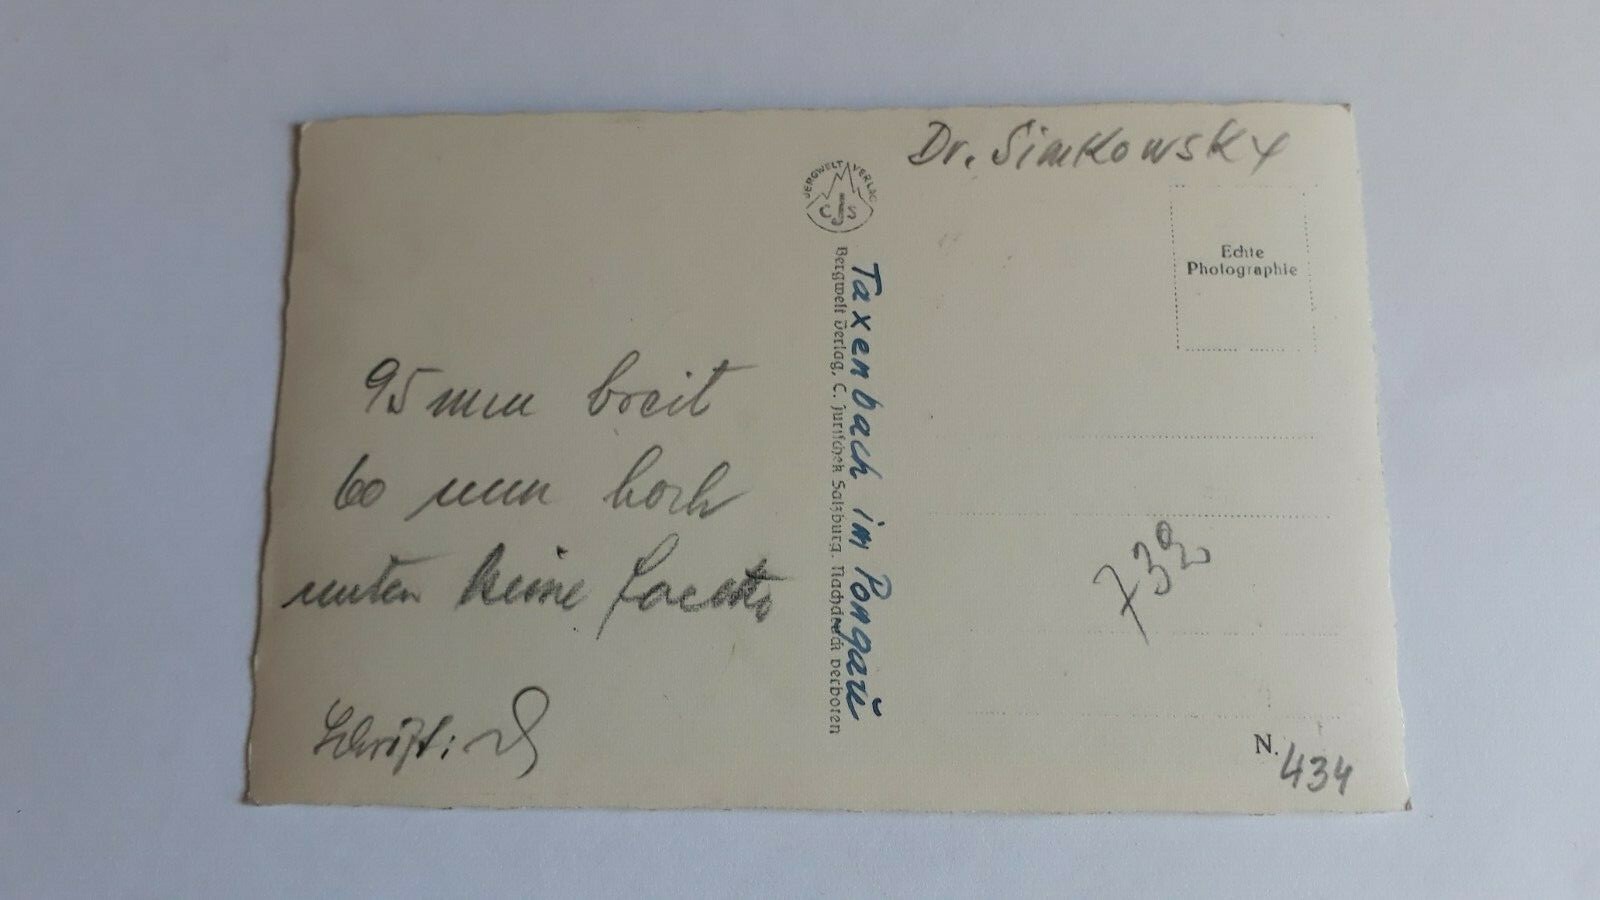 95 mm breit
60 mm hoch
unten keine
Schrift:
BERGWELT VERLAG
CJS
Bergwelt Verlag, C. Jurischek Salzburg. Nachdruck verboten
Taxenbach im Pongau
Dr. Simkowsky
Echte
Photographie
732
N. 434